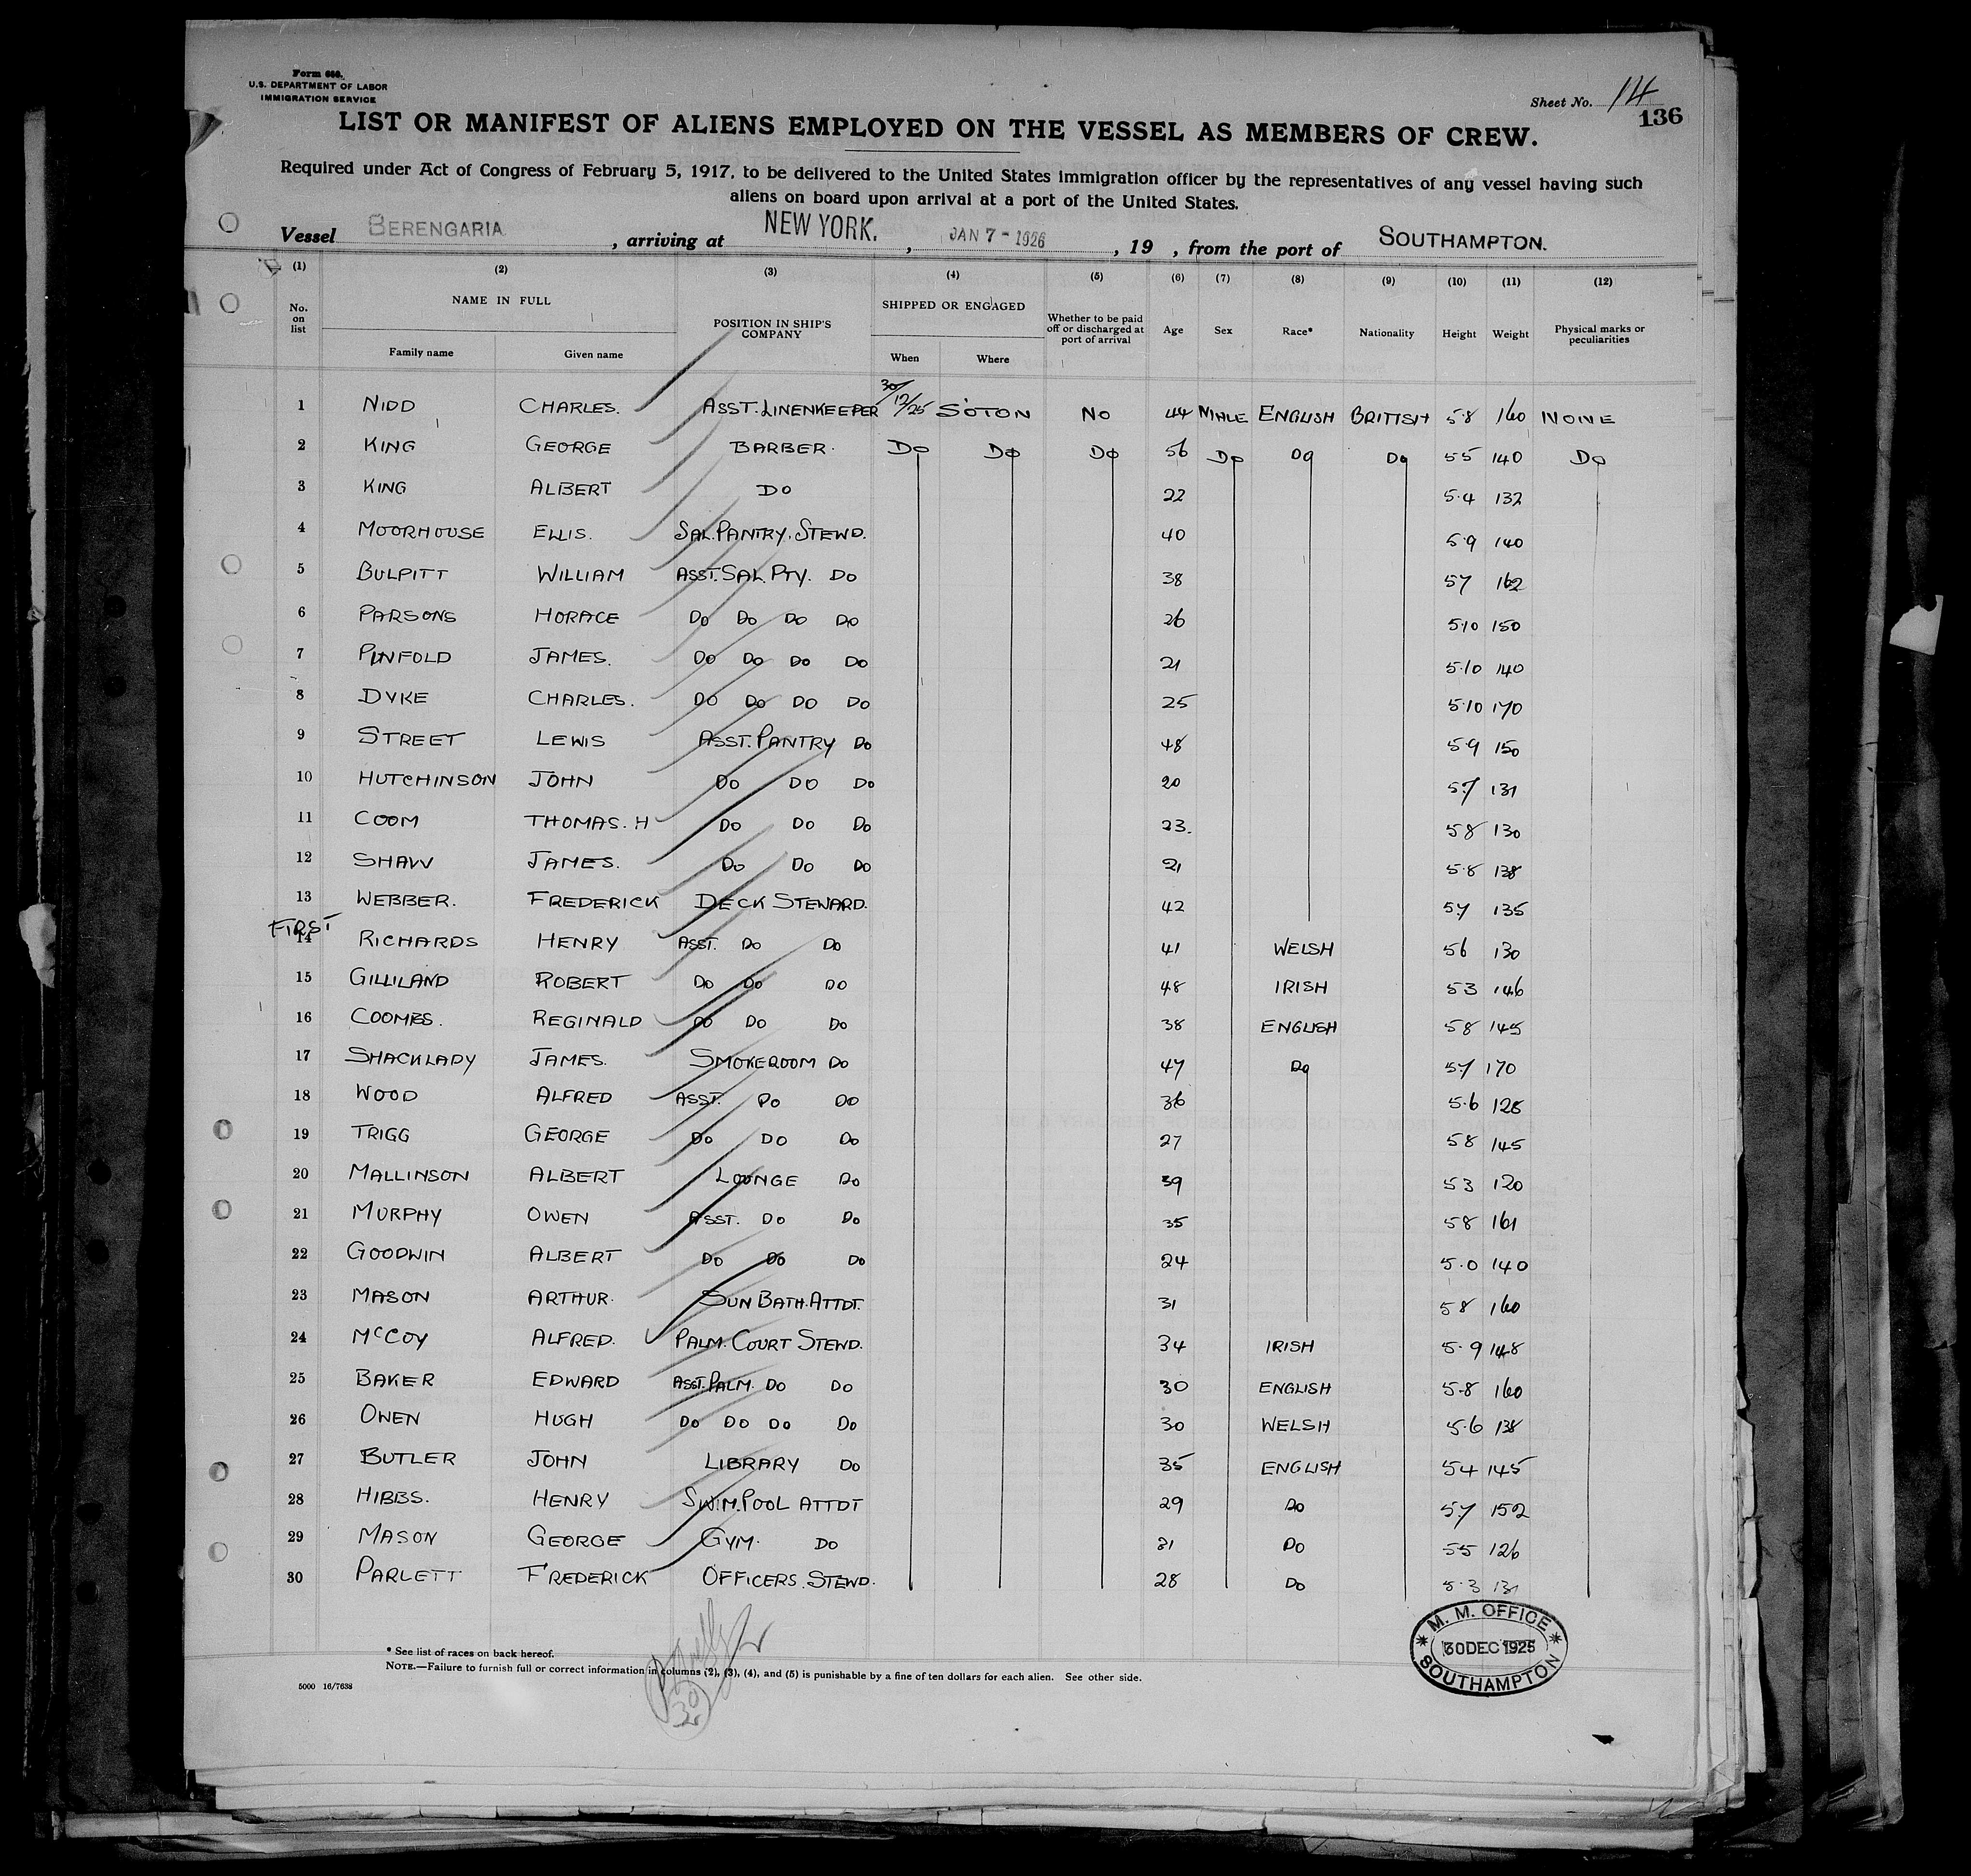 Form 680.
U.S. DEPARTMENT OF LABOR
IMMIGRATION SERVICE
Sheet No. 14
136
LIST OR MANIFEST OF ALIENS EMPLOYED ON THE VESSEL AS MEMBERS OF CREW.
Required under Act of Congress of February 5, 1917, to be delivered to the United States immigration officer by the representatives of any vessel having such
aliens on board upon arrival at a port of the United States.
Vessel BERENGARIA, arriving at NEW YORK., JAN 7-1926, 19 , from the port of SOUTHAMPTON.
(1) (2) (3) (4) (5) (6) (7) (8) (9) (10) (11) (12)
No. on list NAME IN FULL POSITION IN SHIP'S COMPANY SHIPPED OR ENGAGED Whether to be paid off or discharged at port of arrival Age Sex Race* Nationality Height Weight Physical marks or peculiarities
Family name Given name When Where
1 NIDD CHARLES. ASST. LINENKEEPER 30/12/25 S'OTON NO 44 MALE ENGLISH BRITISH 5·8 160 NONE
2 KING GEORGE BARBER. DO DO DO 56 DO DO DO 5 5 140 DO
3 KING ALBERT DO 22 5·4 132
4 MOORHOUSE ELLIS. SAL. PANTRY. STEWD. 40 5·9 140
5 BULPITT WILLIAM ASST. SAL. PTY. DO 38 5 7 162
6 PARSONS HORACE DO DO DO DO 26 5·10 150
7 PINFOLD JAMES. DO DO DO DO 21 5·10 140
8 DYKE CHARLES. DO DO DO DO 25 5·10 170
9 STREET LEWIS ASST. PANTRY DO 48 5·9 150
10 HUTCHINSON JOHN DO DO DO 20 5·7 131
11 COOM THOMAS. H DO DO DO 23. 5 8 130
12 SHAW JAMES. DO DO DO 21 5·8 138
13 WEBBER. FREDERICK DECK STEWARD. 42 5·7 135
FIRST
14 RICHARDS HENRY ASST. DO DO 41 WELSH 5 6 130
15 GILLILAND ROBERT DO DO DO 48 IRISH 5 3 146
16 COOMBS. REGINALD DO DO DO 38 ENGLISH 5 8 145
17 SHACKLADY JAMES. SMOKEROOM DO 47 DO 5 7 170
18 WOOD ALFRED ASST. DO DO 36 5·6 128
19 TRIGG GEORGE DO DO DO 27 5 8 145
20 MALLINSON ALBERT LOUNGE DO 39 5 3 120
21 MURPHY OWEN ASST. DO DO 35 5 8 161
22 GOODWIN ALBERT DO DO DO 24 5·0 140
23 MASON ARTHUR. SUN BATH. ATTDT. 31 5 8 160
24 McCOY ALFRED. PALM. COURT STEWD. 34 IRISH 5·9 148
25 BAKER EDWARD ASST. PALM. DO DO 30 ENGLISH 5·8 160
26 OWEN HUGH DO DO DO DO 30 WELSH 5·6 138
27 BUTLER JOHN LIBRARY DO 35 ENGLISH 5 4 145
28 HIBBS. HENRY SWIM. POOL ATTDT 29 DO 5·7 152
29 MASON GEORGE GYM. DO 31 DO 5 5 126
30 PARLETT FREDERICK OFFICERS. STEWD. 28 DO 5·3 131
* See list of races on back hereof.
NOTE.—Failure to furnish full or correct information in columns (2), (3), (4), and (5) is punishable by a fine of ten dollars for each alien. See other side.
5000 16/7638
M. M. OFFICE
30 DEC 1925
SOUTHAMPTON